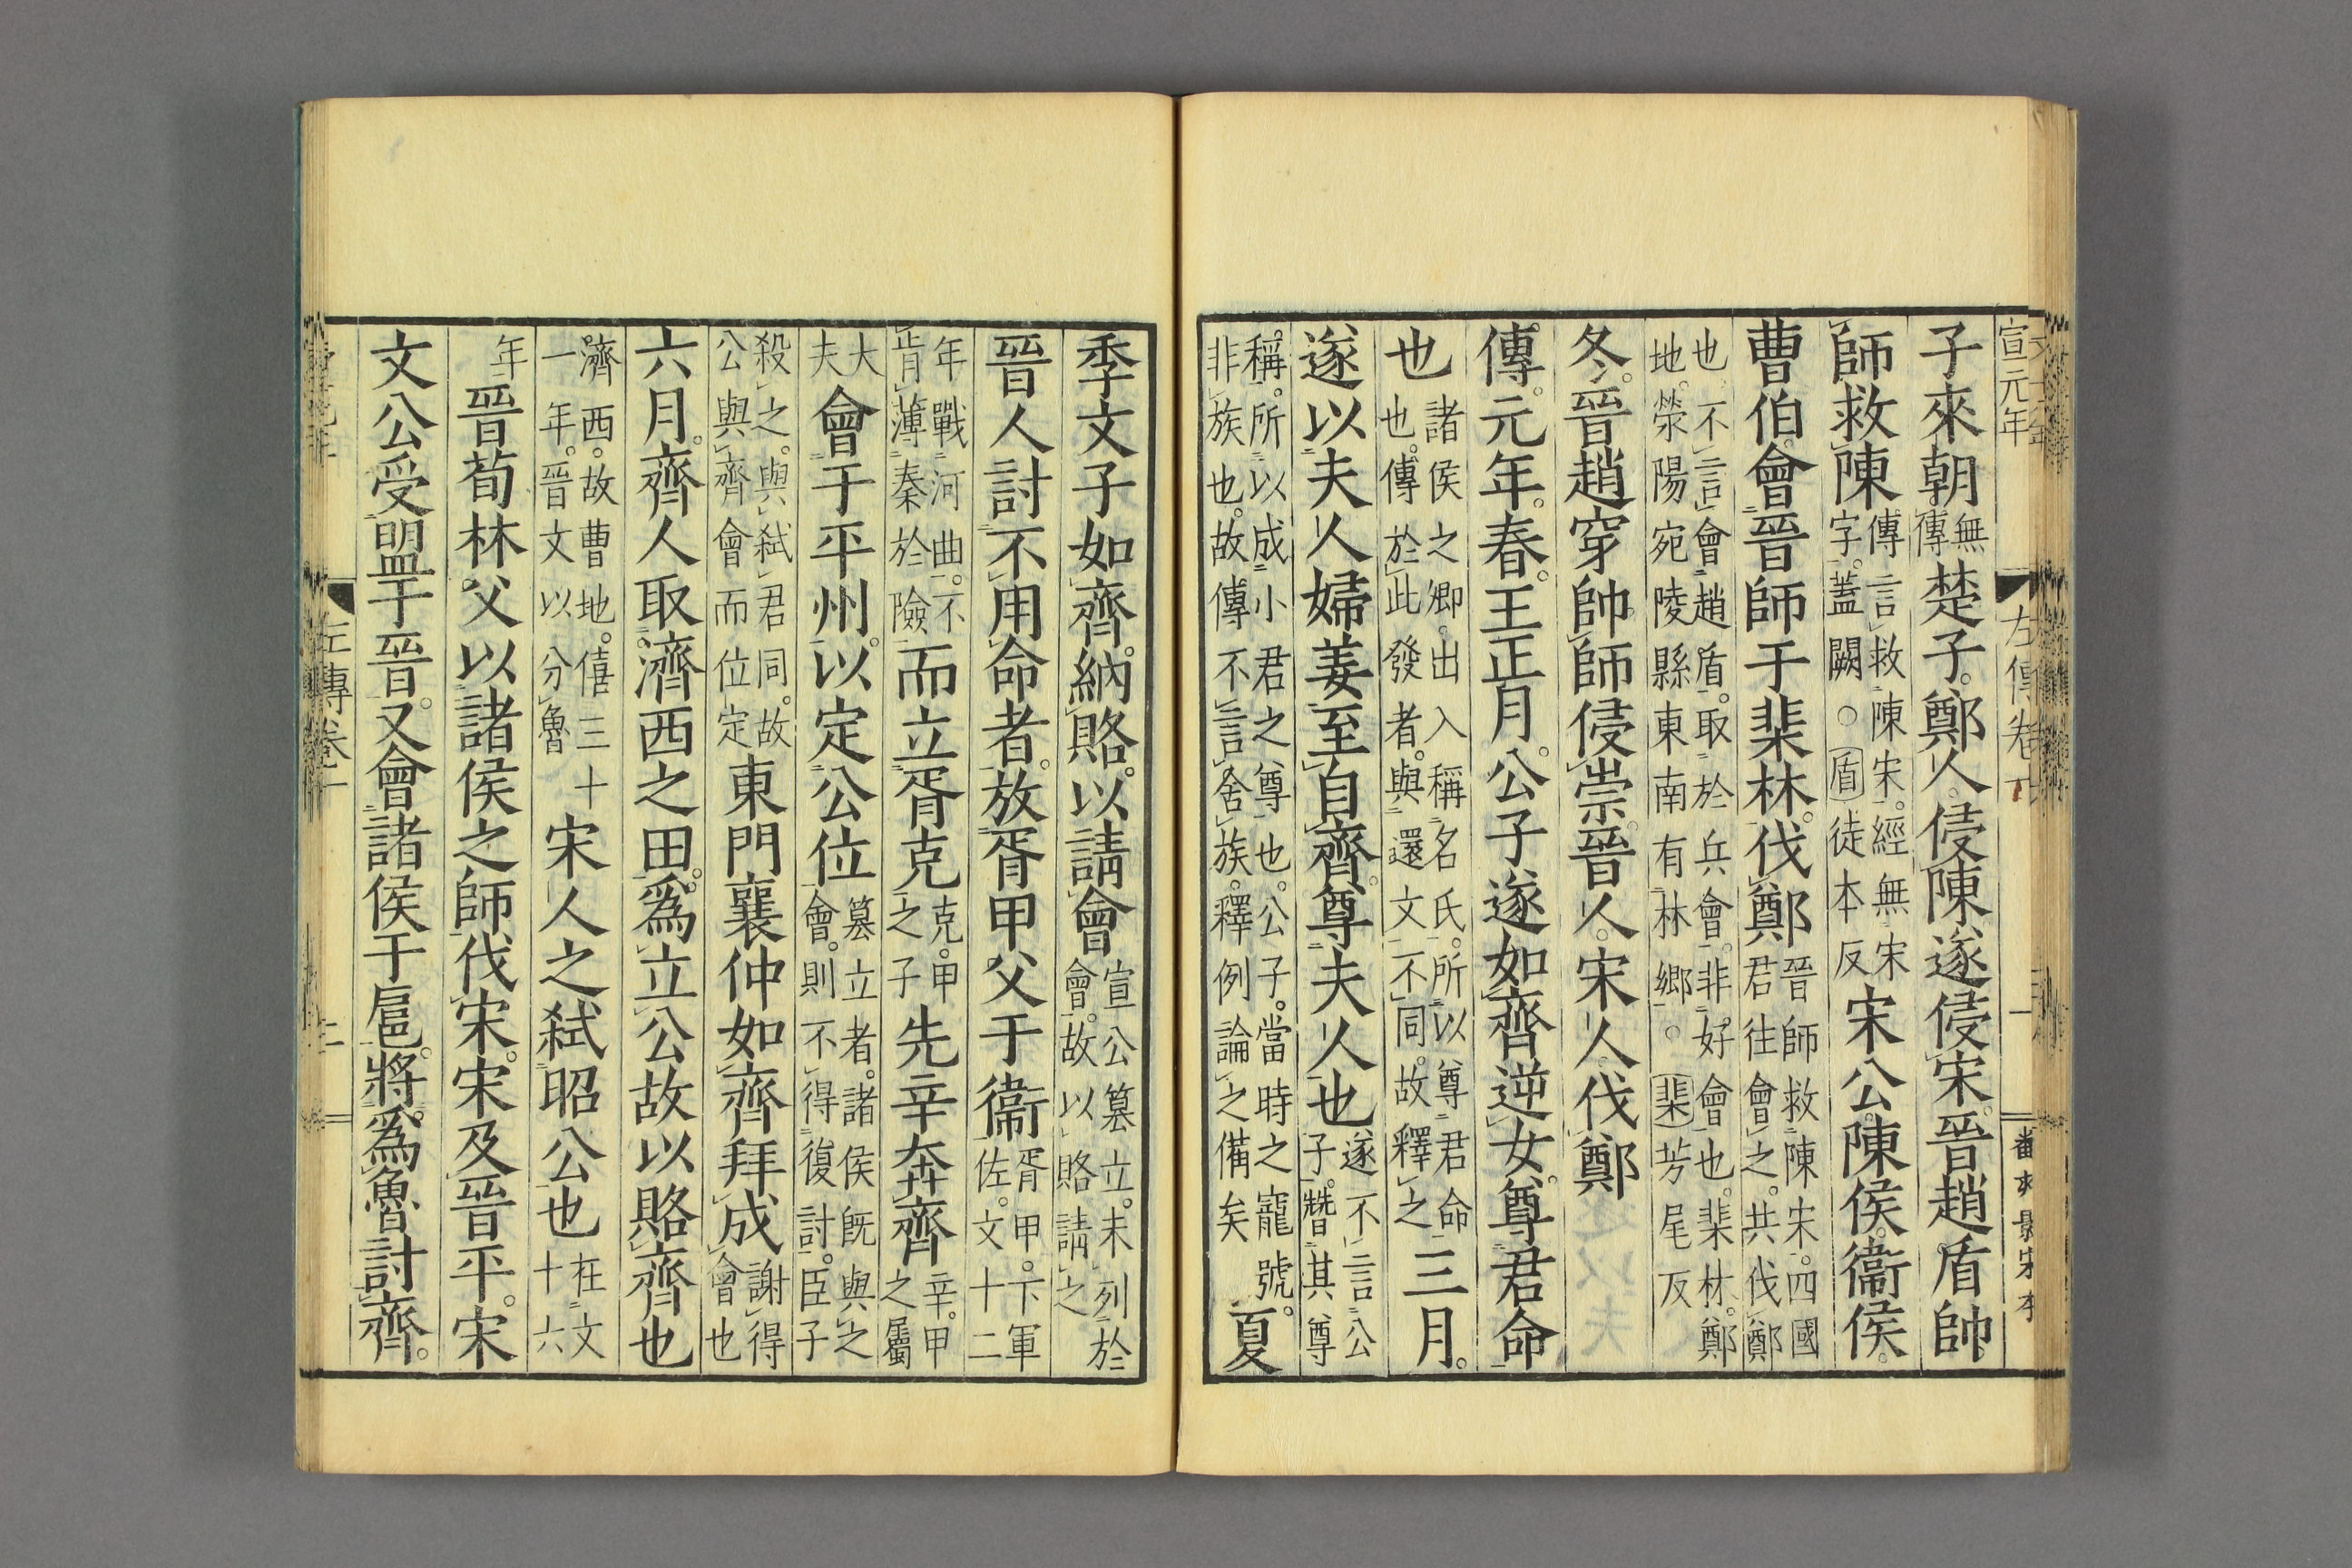 宣元年 左傳卷十 一 景宋本
子來朝。無傳楚子。鄭人。侵陳。遂侵宋。晉趙盾帥
師救陳。傳言救陳宋。經無宋字。蓋闕。○盾徒本反宋公。陳侯。衞侯。
曹伯。會晉師于棐林。伐鄭晉師救陳宋。四國君往會之。共伐鄭
也不言會趙盾。取於兵會。非好會也。棐林。鄭地。滎陽宛陵縣東南有林鄉。○棐芳尾反
冬。晉趙穿帥師侵崇。晉人。宋人。伐鄭
傳。元年。春。王正月。公子遂如齊逆女。尊君命
也諸侯之卿。出入稱名氏。所以尊君命也。傳於此發者。與還文不同。故釋之三月。
遂以夫人婦姜至自齊。尊夫人也遂不言公子。替其尊
稱。所以成小君之尊也。公子。當時之寵號。非族也。故傳不言舍族。釋例論之備矣夏
季文子如齊。納賂。以請會宣公篡立。未列於會。故以賂請之
晉人討不用命者。放胥甲父于衞胥甲。下軍佐。文十二
年戰河曲。不肯薄秦於險而立胥克克。甲之子先辛奔齊辛。甲之屬
大夫會于平州。以定公位篡立者。諸侯既與之會。則不得復討。臣子
殺之。與弒君同。故公與齊會而位定東門襄仲如齊拜成謝得會也
六月。齊人取濟西之田。爲立公故以賂齊也
濟西。故曹地。僖三十一年。晉文以分魯宋人之弒昭公也在文十六
年晉荀林父以諸侯之師伐宋。宋及晉平。宋
文公受盟于晉。又會諸侯于扈。將爲魯討齊。
左傳卷十 二